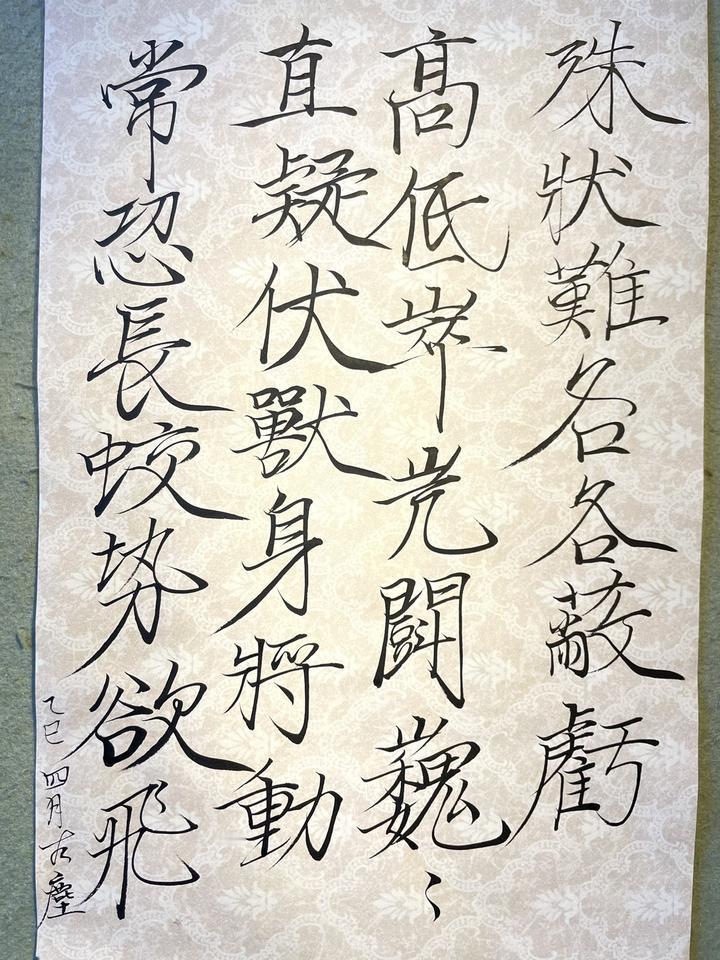 殊狀難名各蔽虧
高低崒屼鬪巍〻
直疑伏獸身將動
常恐長蛟勢欲飛
乙巳 四月古塵